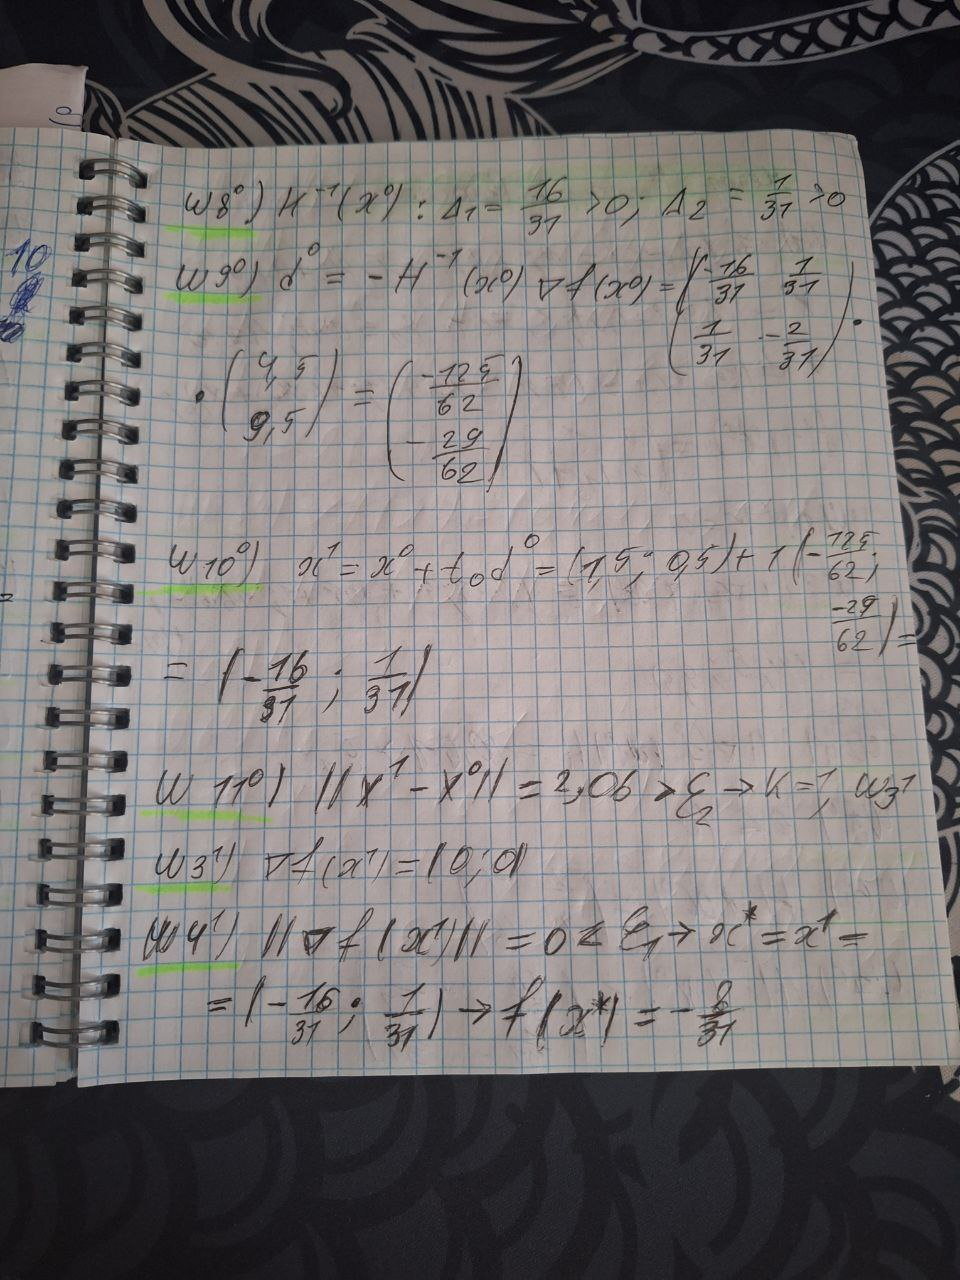 10
ш 8⁰) H⁻¹(x⁰): Δ₁ = 16/31 > 0; Δ₂ = 1/31 > 0
ш 9⁰) d⁰ = -H⁻¹(x⁰) ∇f(x⁰) = (-16/31 1/31
1/31 -2/31) ·
· (4,5
9,5) = (-125/62
-29/62)
ш 10⁰) x¹ = x⁰ + t₀d⁰ = (1,5; 0,5) + 1(-125/62;
-29/62) =
= (-16/31; 1/31)
ш 11⁰) ||x¹ - x⁰|| = 2,06 > ε₂ → K = 1, ш3¹
ш 3¹) ∇f(x¹) = (0; 0)
ш 4¹) ||∇f(x¹)|| = 0 < ε₁ → x* = x¹ =
= (-16/31; 1/31) → f(x*) = -8/31